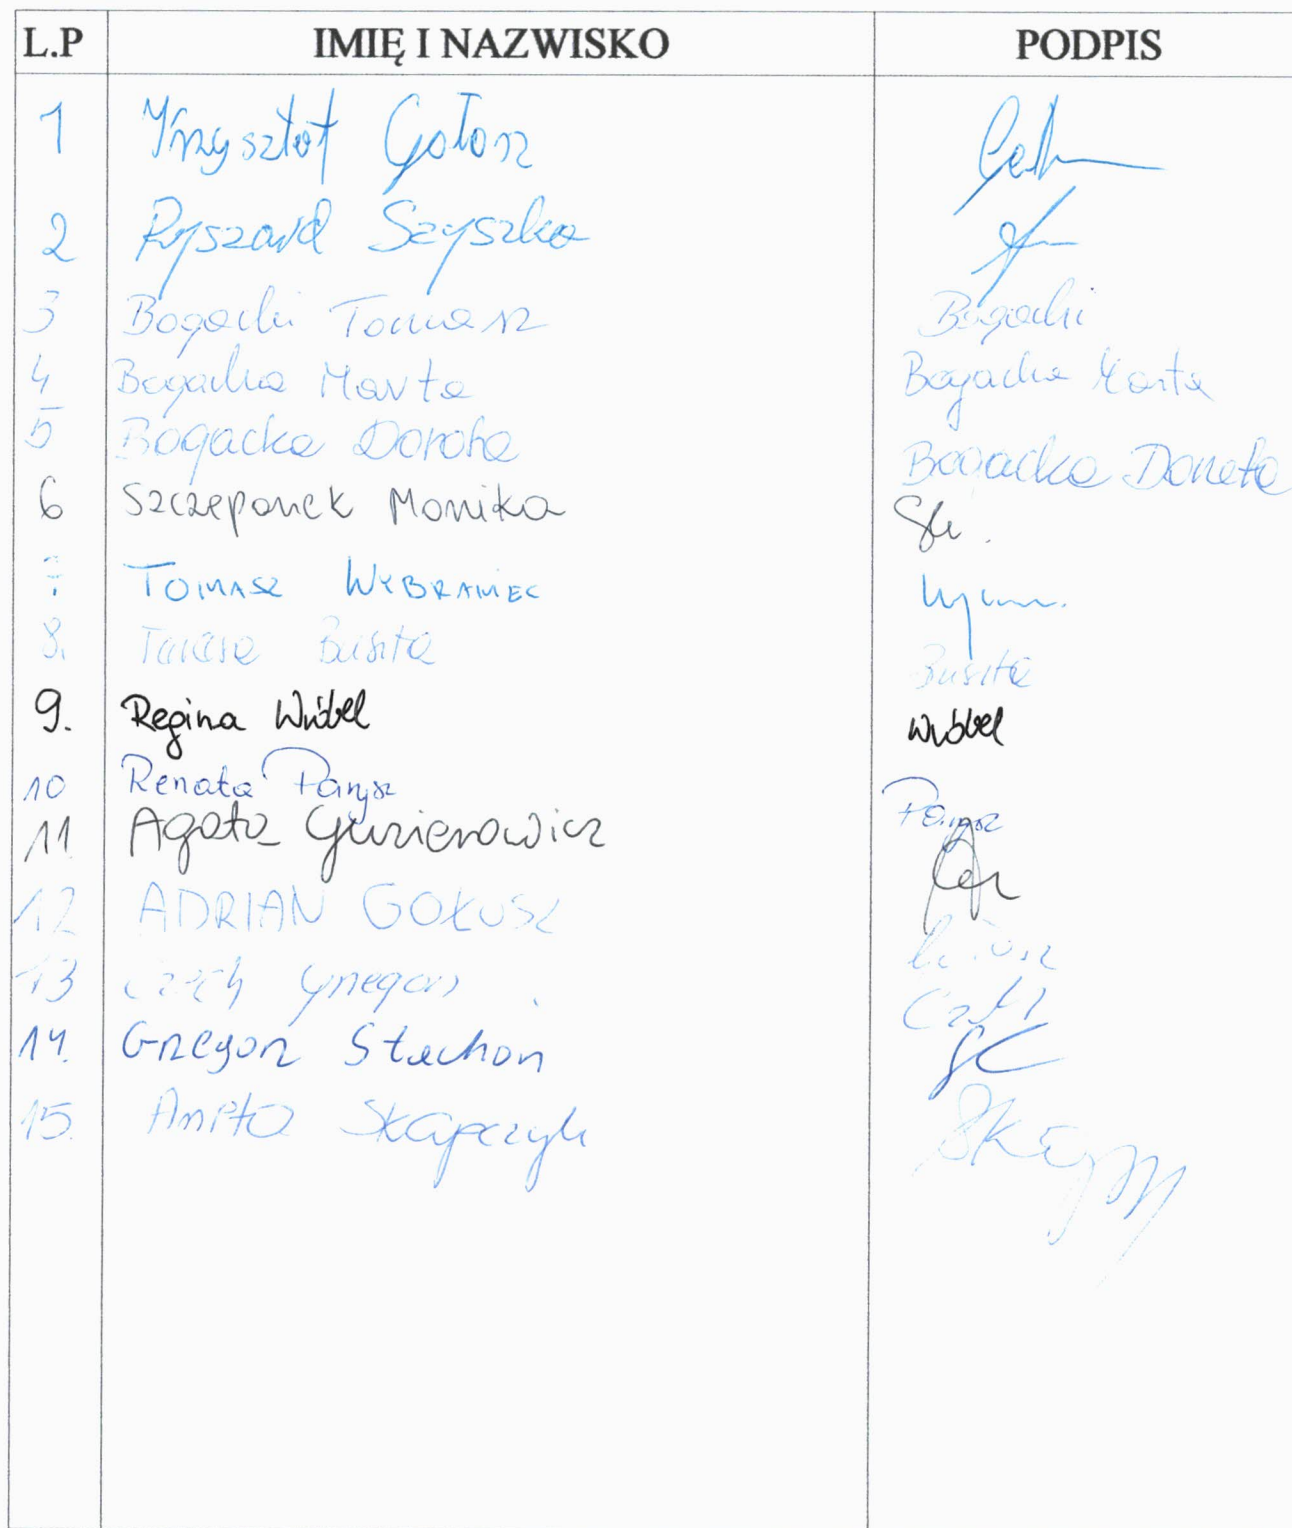 L.P IMIĘ I NAZWISKO PODPIS
1 Krzysztof Gołosz
2 Ryszard Szyszka
3 Bogacki Tomasz Bogacki
4 Bogacka Marta Bogacka Marta
5 Bogacka Dorota Bogacka Dorota
6 Szczepanek Monika
7. TOMASZ WYBRANIEC
8. Busita Busita
9. Regina Wróbel Wróbel
10 Renata Parysz Parysz
11. Agata
12 ADRIAN GOŁUSZ
13 Czech Grzegorz Czech
14. Grzegorz Stachoń
15. Aneta Skapczyk